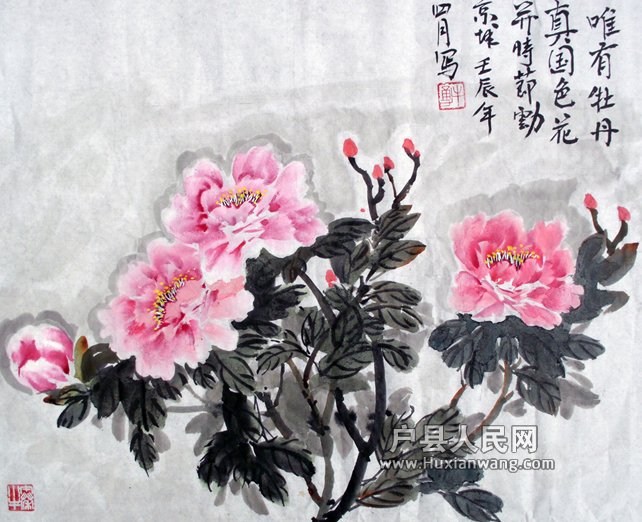 唯有牡丹
真国色花
开時節動
京城壬辰年
四月写
户县人民网
www.Huxianwang.com